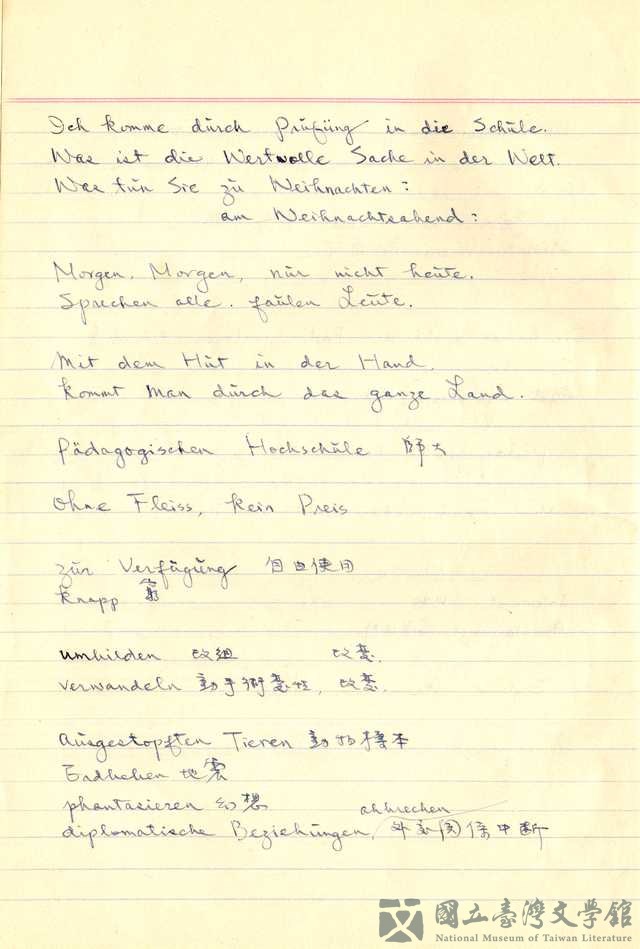 Ich komme durch Prüfung in die Schule.
Was ist die Wertvolle Sache in der Welt.
Was tun Sie zu Weihnachten:
am Weihnachtsabend:
Morgen. Morgen, nur nicht heute.
Sprechen alle. faulen Leute.
Mit dem Hut in der Hand.
kommt man durch das ganze Land.
Pädagogischen Hochschule 師大
Ohne Fleiss, kein Preis
zur Verfügung 自由使用
knapp 窮
umbilden 改組 改變.
verwandeln 動手術變性, 改變.
Ausgestopften Tieren 動物標本
Erdbeben 地震
phantasieren 幻想
abbrechen
diplomatische Beziehungen, 外交関係中断
國立臺灣文學館
National Museum of Taiwan Literature